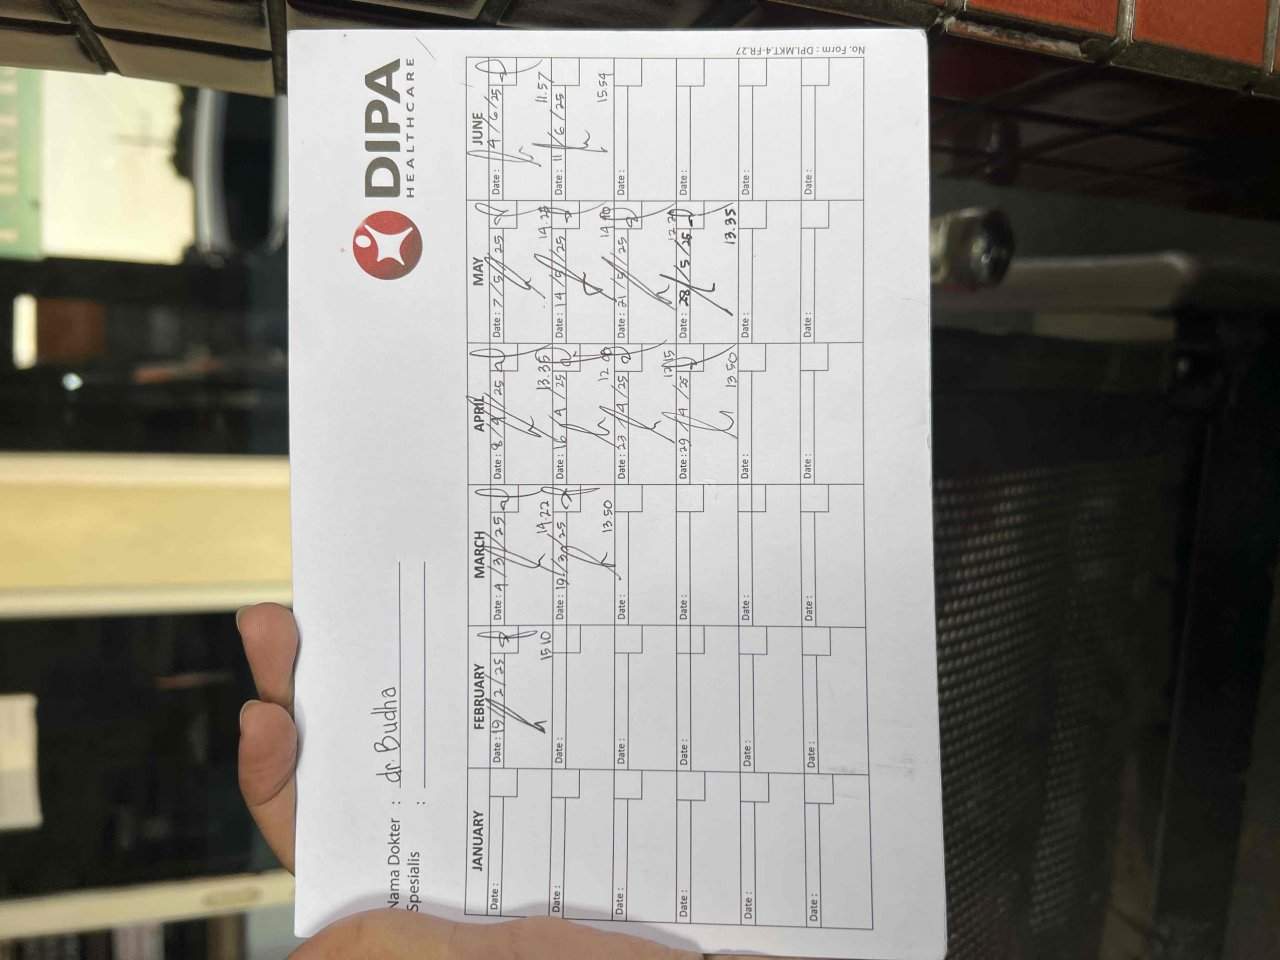 DIPA
HEALTHCARE
Nama Dokter : dr. Budha
Spesialis :
JANUARY FEBRUARY MARCH APRIL MAY JUNE
Date : Date : 19/2/25 Date : 4/3/25 Date : 8/4/25 Date : 7/5/25 Date : 4/6/25
15.10 14.22 13.35 14.25 11.57
Date : Date : Date : 19/3/25 Date : 16/4/25 Date : 14/5/25 Date : 11/6/25
13.50 12.09 14.10 15.54
Date : Date : Date : Date : 23/4/25 Date : 21/5/25 Date :
12.15
Date : Date : Date : Date : 29/4/25 Date : 28/5/25 Date :
13.50 13.35
Date : Date : Date : Date : Date : Date :
Date : Date : Date : Date : Date : Date :
No. Form : DPI.MKT.4-FR.27